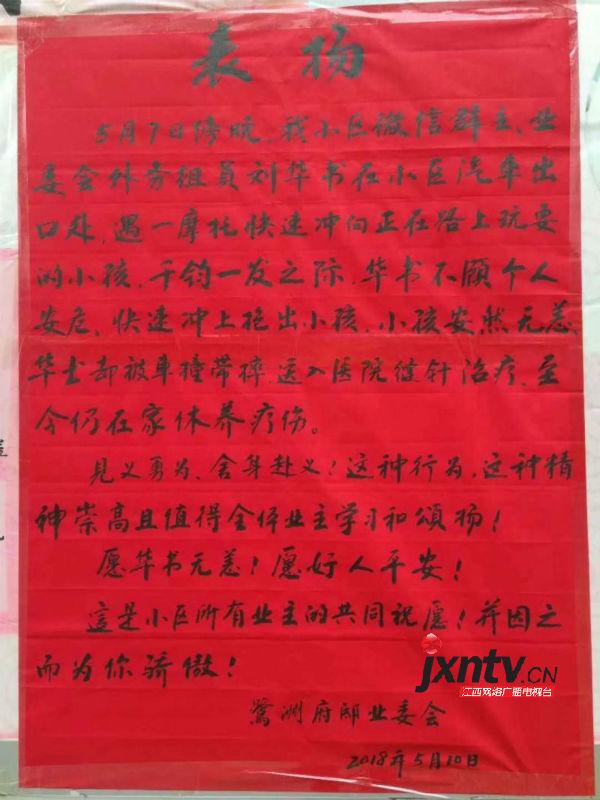 表扬
5月7日傍晚，我小区微信群主、业
委会外务组员刘华书在小区汽车出
口处，遇一摩托快速冲向正在路上玩耍
的小孩，千钧一发之际，华书不顾个人
安危，快速冲上抱出小孩，小孩安然无恙，
华书却被车撞带摔，送入医院缝针治疗，至
今仍在家休养疗伤。
見义勇为、舍身赴义！这种行为，这种精
神崇高且值得全体业主学习和颂扬！
愿华书无恙！愿好人平安！
這是小区所有业主的共同祝愿！并因之
而为你骄傲！
鹭洲府邸业委会
2018年5月10日
jxntv.CN
江西网络广播电视台